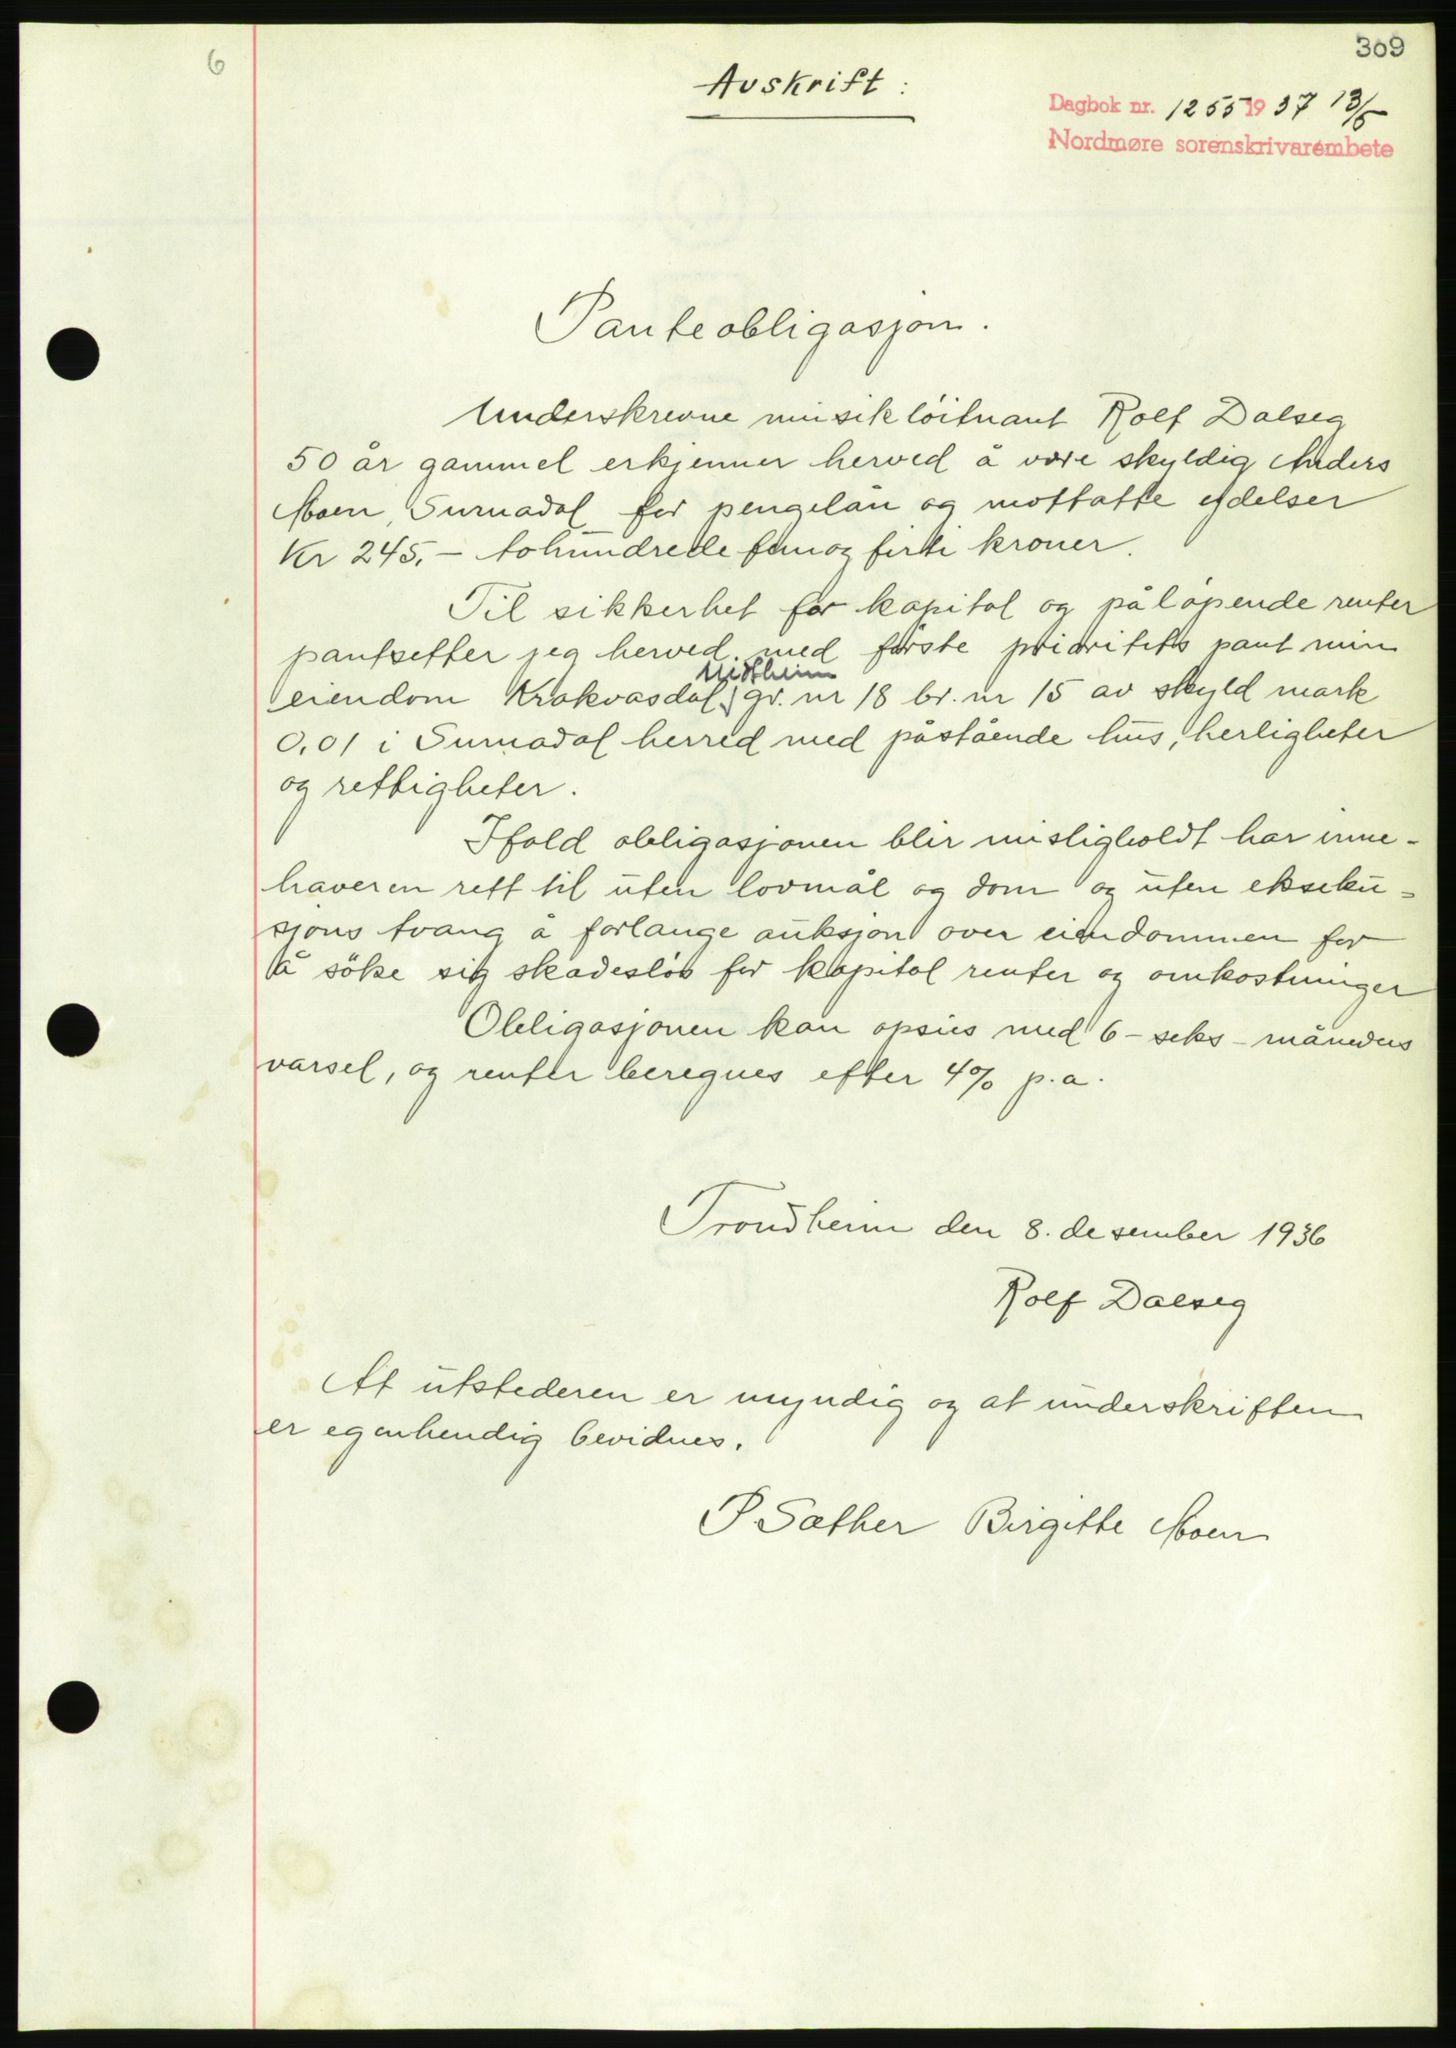 6
309
Avskrift:
Dagbok nr. 1255 1937 13/5
Nordmøre sorenskrivarembete
Panteobligasjon.
Underskrevne musikløitnant Rolf Dalseg
50 år gammel erkjenner herved å være skyldig Anders
Moen, Surnadal for pengelån og mottatte ydelser
Kr 245,- tohundrede femogførti kroner.
Til sikkerhet for kapital og påløpende renter
pantsetter jeg herved med første prioritets pant min
eiendom Krakvasdal, gr. nr 18 br. nr 15 av skyld mark
0,01 i Surnadal herred med påstående hus, herligheter
og rettigheter.
Ifald obligasjonen blir misligholdt har inne-
haveren rett til uten lovmål og dom og uten ekseku-
sjons tvang å forlange auksjon over eiendommen for
å söke sig skadesløs for kapital renter og omkostninger
Obligasjonen kan opsies med 6 - seks - måneders
varsel, og renter beregnes efter 4% p.a.
Trondheim den 8. desember 1936
Rolf Dalseg
At utstederen er myndig og at underskriften
er egenhendig bevidnes.
P. Sæther Birgitte Moen